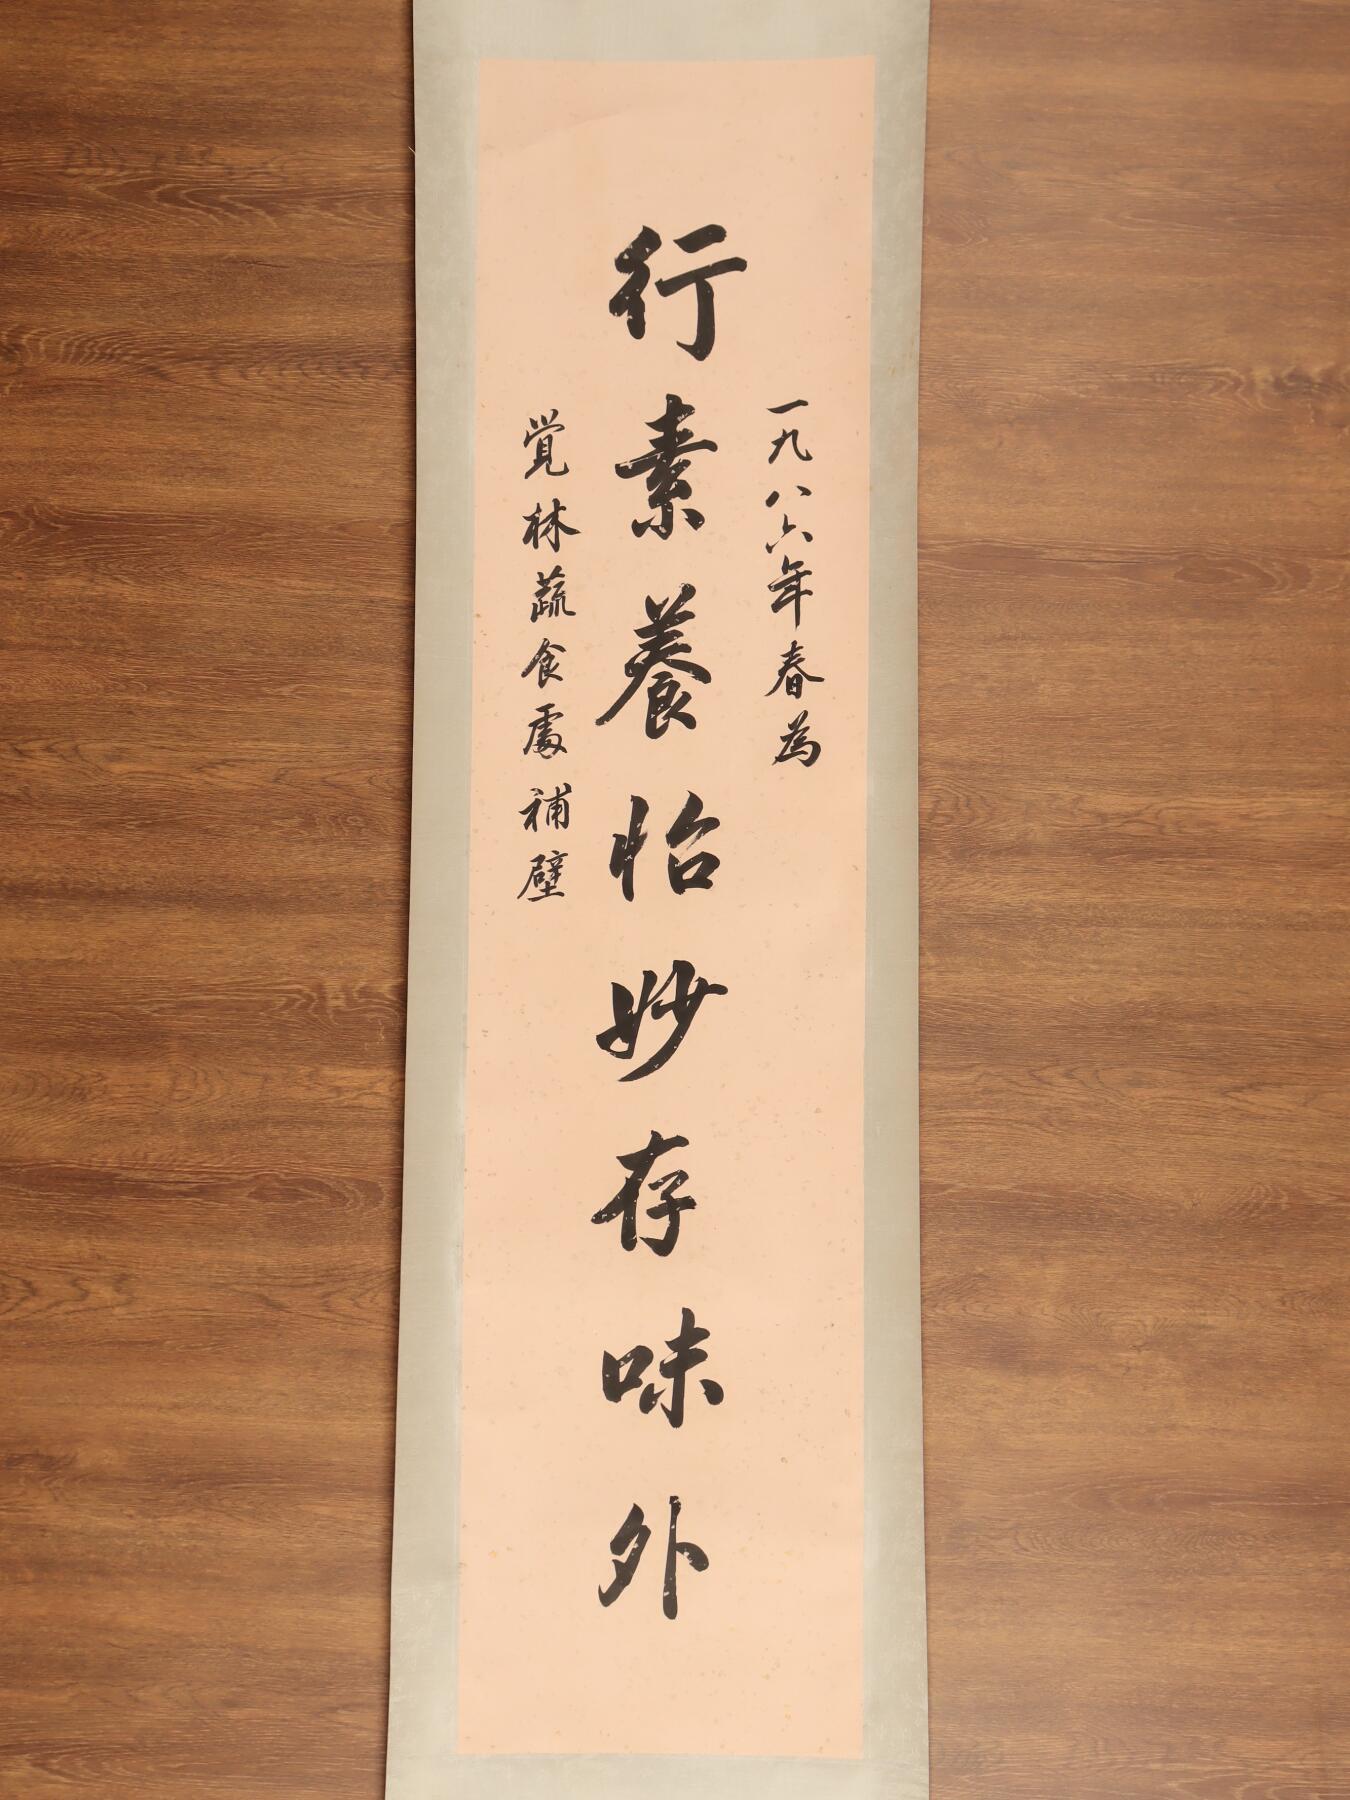 一九八六年春為
行素養怡妙存味外
覺林蔬食處補壁